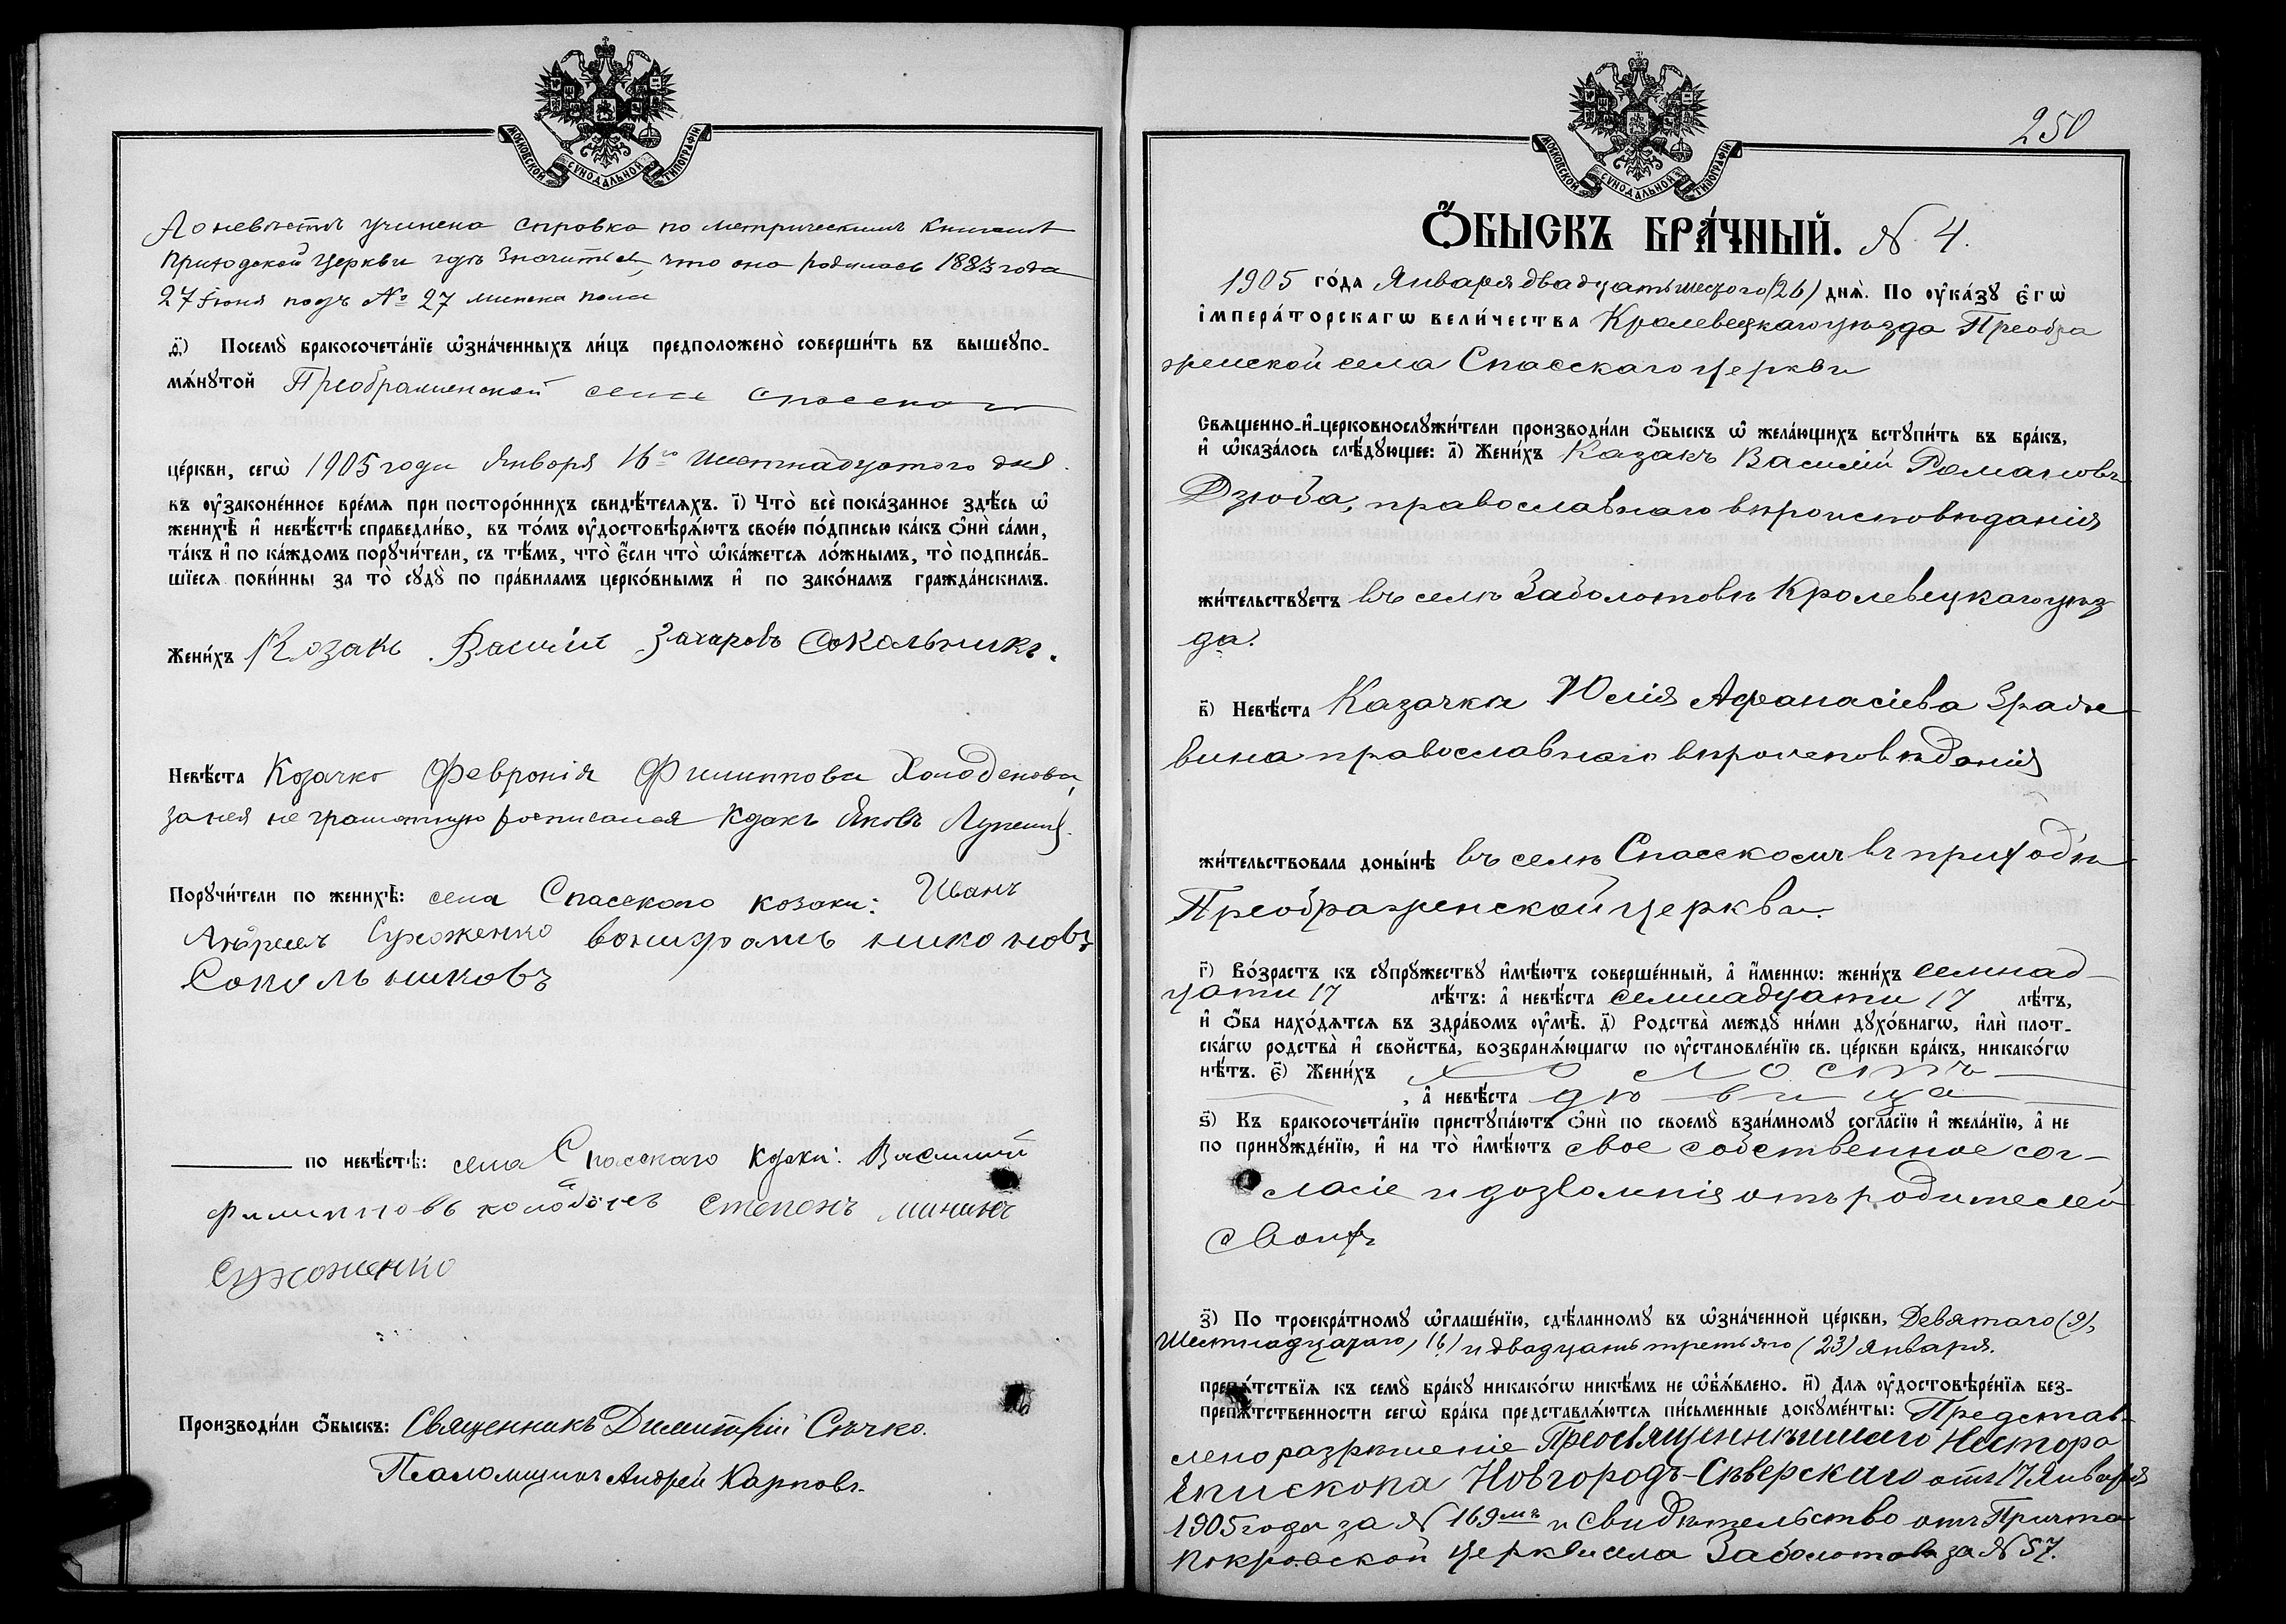 МОСКОВСКОЙ СѴНОДАЛЬНОЙ ТИПОГРАФІИ
учинена справка по метрическимъ книгамъ
Приходской церкви гдѣ значится, что она родилась 1883 года
27 Іюня подъ № 27 женска пола
д҃і) Посемꙋ̀ бракосочета́нїе ѡ҆зна́ченныхъ ли́цъ предположено̀ соверши́ть въ вышеꙋпо-
мѧ́нꙋтой Преображенской села Спасского
це́ркви, сегѡ̀ 1905 года Января 16го шестнадцатого дня.
въ ᲂу҆зако́ненное вре́мѧ при посторо́ннихъ свидѣ́телѧхъ. і҃) Что̀ всѐ пока́занное здѣ́сь ѡ҆
женихѣ̀ и҆ невѣ́стѣ справедли́во, въ то́мъ ᲂу҆достовѣрѧ́ютъ свое́ю по́дписью ка́къ ѻ҆нѝ са́ми,
та́къ и҆ по ка́ждомъ порꙋчи́тели, съ тѣ́мъ, что̀ є҆́сли что̀ ѡ҆ка́жетсѧ ло́жнымъ, то̀ подписа́в-
шїесѧ пови́нны за то̀ сꙋдꙋ̀ по пра́виламъ церко́внымъ и҆ по зако́намъ гражда́нскимъ.
Жени́хъ Козакъ Васілій Захаровъ Сокольникъ.
Невѣ́ста Козачка Февронія Филиппова Холоденова,
за нея не грамотную росписался Козакъ Яковъ
Порꙋчи́тели по женихѣ̀: села Спасского козаки: Иванъ
Андреевъ Сухоженко никоновъ
Сокольниковъ
по невѣ́стѣ: села Спасского козаки: Василий
Филипповъ Степонъ мининъ
Сухоженко
Производи́ли ѻ҆́быскъ: Священникъ Димитрій Сѣчко.
Псаломщикъ Андрей Карповъ.
МОСКОВСКОЙ СѴНОДАЛЬНОЙ ТИПОГРАФІИ
250
Ѻ҆́БЫСКЪ БРА́ЧНЫЙ. № 4.
1905 го́да Января двадцать шестого (26) днѧ̀. По ᲂу҆ка́зꙋ є҆гѡ̀
і҆мпера́торскагѡ вели́чества Кролевецкаго уѣзда Преобра
женской села Спасскаго церкви
Свѧщенно-и҆-церковнослꙋжи́тели производи́ли ѻ҆́быскъ ѡ҆ жела́ющихъ встꙋпи́ть въ бра́къ,
и҆ ѡ҆каза́лось слѣ́дꙋющее: а҃) Жени́хъ Казакъ Василій Романовъ
Дзюба, православнаго вѣроисповѣданія
жи́тельствꙋетъ въ селѣ Заболотовѣ Кролевецкаго уѣз
да.
в҃) Невѣ́ста Казачка Юлія Афанасіева Зраже
вина православнаго вѣроисповѣданія
жи́тельствовала доны́нѣ въ селѣ Спасскомъ въ приходѣ
Преображенской церкви.
г҃) Во́зрастъ къ сꙋпрꙋ́жествꙋ и҆мѣ́ютъ соверше́нный, а҆ и҆́менно: жени́хъ семнад-
цати 17 лѣ́тъ: а҆ невѣ́ста семнадцати 17 лѣ́тъ,
и҆ ѻ҆́ба нахо́дѧтсѧ въ здра́вомъ ᲂу҆мѣ̀. д҃) Родства̀ междꙋ̀ ни́ми дꙋхо́внагѡ, и҆лѝ плот-
ска́гѡ родства̀ и҆ свойства̀, возбранѧ́ющагѡ по ᲂу҆становле́нїю св. це́ркви бра́къ, никако́гѡ
нѣ́тъ. є҃) Жени́хъ холостъ
, а҆ невѣ́ста дѣвица
ѕ҃) Къ бракосочета́нїю пристꙋпа́ютъ ѻ҆нѝ по своемꙋ̀ взаи́мномꙋ согла́сїю и҆ жела́нїю, а҆ не
по принꙋжде́нїю, и҆ на то̀ и҆мѣ́ютъ свое собственное сог-
ласіе и дозволенія отъ родителей
своихъ
з҃) По троекра́тномꙋ ѡ҆глаше́нїю, сдѣ́ланномꙋ въ ѡ҆зна́ченной це́ркви, Девятаго (9),
Шестнадцатаго, 16) и двадцать третьяго (23) Января.
препѧ́тствїѧ къ семꙋ̀ бра́кꙋ никако́гѡ никѣ́мъ не ѡ҆б̾ѧ́влено. и҃) Для ᲂу҆достовѣре́нїѧ без-
препѧ́тственности сегѡ̀ бра́ка представлѧ́ютсѧ пи́сьменные докꙋме́нты: Представ-
лено разрѣшеніе Преосвященнѣйшаго Нестора
Епископа Новгородъ-Сѣверскаго отъ 17 Января
1905 года за № 169мъ и свидѣтельство отъ Причта
Покровской церкви села Заболотова за № 57.